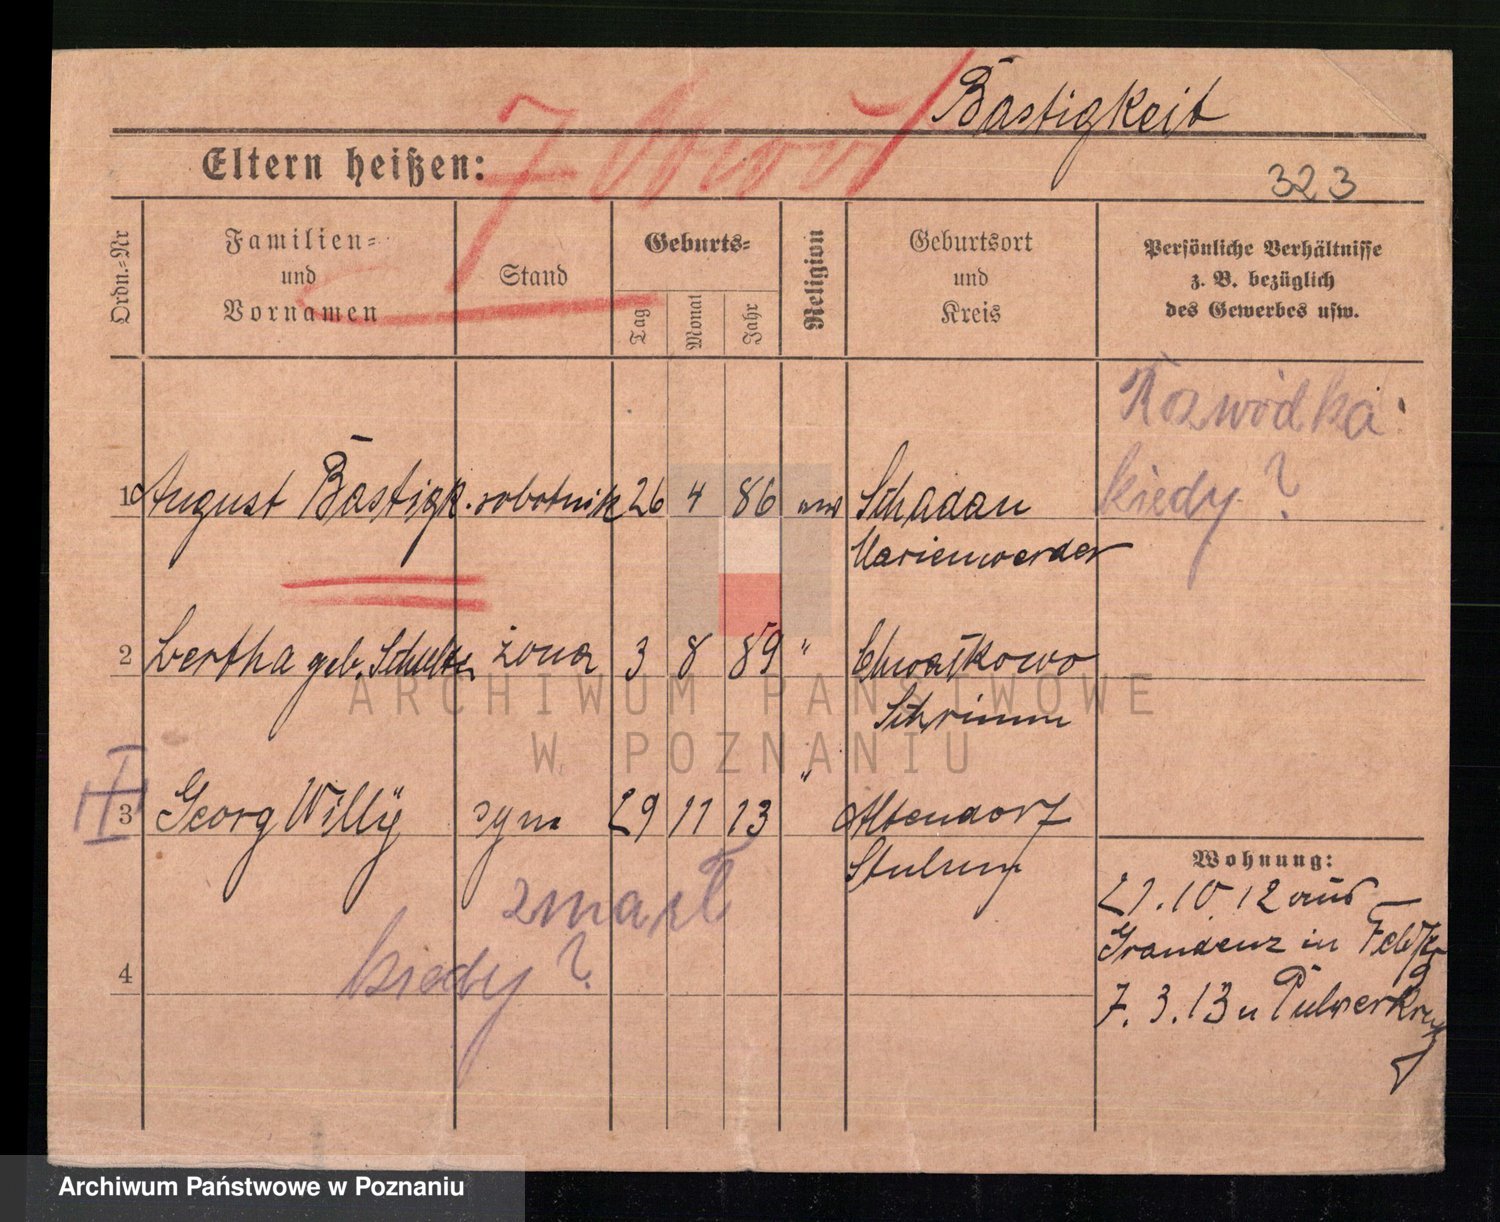 Bastigkeit
Eltern heißen:
323
Ordn.=Nr
Familien=
und
Vornamen
Stand
Geburts=
Tag
Monat
Jahr
Religion
Geburtsort
und
Kreis
Persönliche Verhältnisse
z. B. bezüglich
des Gewerbes usw.
Rozwódka
kiedy?
1 August Bastigk. robotnik 26 4 86 Schadau
Marienwerder
2 Bertha geb. Schultz żona 3 8 89 " Chwałkowo
Schrimm
3 Georg Willÿ syn 29 11 13 " Altendorf
Stuhm
zmarł
kiedy?
4
Wohnung:
21.10.12 aus
Graudenz in
7.3.13 n
ARCHIWUM PAŃSTWOWE
W POZNANIU
Archiwum Państwowe w Poznaniu